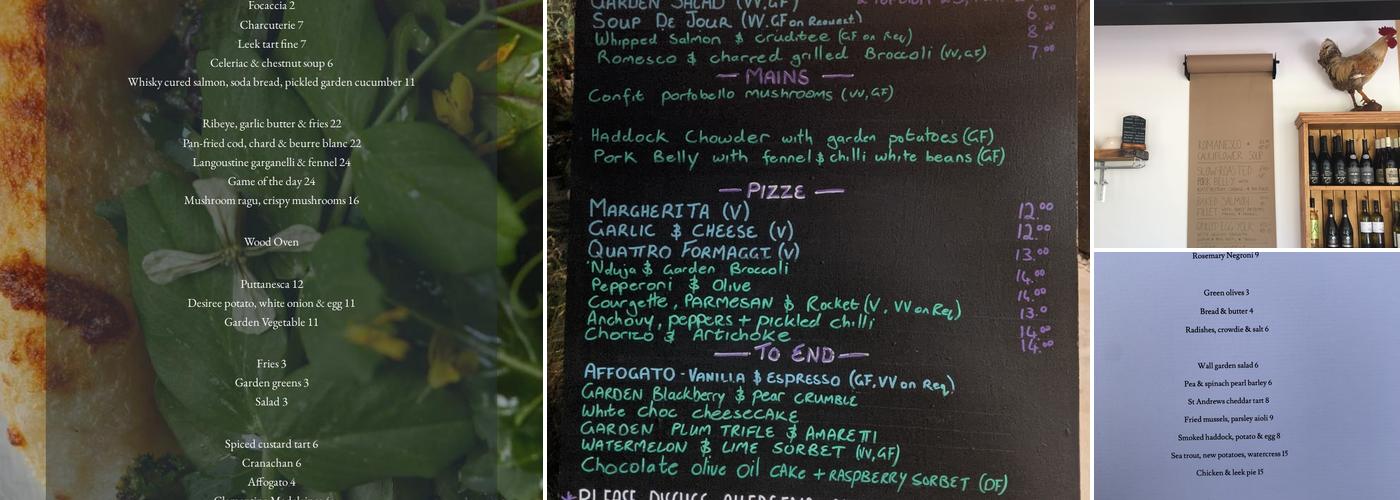 Focaccia 2
Charcuterie 7
Leek tart fine 7
Celeriac & chestnut soup 6
Whisky cured salmon, soda bread, pickled garden cucumber 11
Ribeye, garlic butter & fries 22
Pan-fried cod, chard & beurre blanc 22
Langoustine garganelli & fennel 24
Game of the day 24
Mushroom ragu, crispy mushrooms 16
Wood Oven
Puttanesca 12
Desiree potato, white onion & egg 11
Garden Vegetable 11
Fries 3
Garden greens 3
Salad 3
Spiced custard tart 6
Cranachan 6
Affogato 4
GARDEN SALAD (VV, GF) 6.00
SOUP DE JOUR (VV, GF on Request) 8.00
Whipped Salmon & cruditee (GF on Req) 7.00
Romesco & charred grilled Broccoli (VV, GF)
— MAINS —
Confit portobello mushrooms (VV, GF)
Haddock Chowder with garden potatoes (GF)
Pork Belly with fennel & chilli white beans (GF)
— PIZZE —
MARGHERITA (V) 12.00
GARLIC & CHEESE (V) 12.00
QUATTRO FORMAGGI (V) 13.00
'Nduja & Garden Broccoli 14.00
Pepperoni & Olive 14.00
Courgette, PARMESAN & Rocket (V, VV on Req) 13.0
Anchovy, peppers + pickled chilli 14.00
Chorizo & Artichoke 14.00
— TO END —
AFFOGATO - VANILLA & ESPRESSO (GF, VV on Req)
GARDEN Blackberry & pear CRUMBLE
White choc cheeseCAKE
GARDEN PLUM TRIFLE & AMARETTI
WATERMELON & LIME SORBET (VV, GF)
Chocolate olive oil CAKE + RASPBERRY SORBET (DF)
PLEASE DISCUSS
ROMANESCO &
CAULIFLOWER SOUP
SLOW ROASTED
PORK BELLY
BAKED SALMON
FILLET
Rosemary Negroni 9
Green olives 3
Bread & butter 4
Radishes, crowdie & salt 6
Wall garden salad 6
Pea & spinach pearl barley 6
St Andrews cheddar tart 8
Fried mussels, parsley aioli 9
Smoked haddock, potato & egg 8
Sea trout, new potatoes, watercress 15
Chicken & leek pie 15